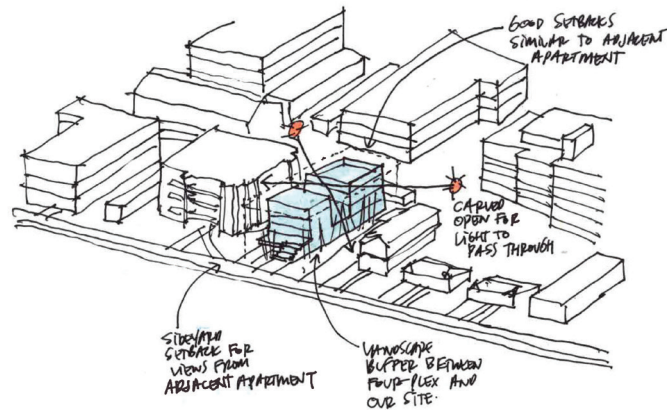 GOOD SETBACKS
SIMILAR TO ADJACENT
APARTMENT
CARVED
OPEN FOR
LIGHT TO
PASS THROUGH
SIDEYARD
SETBACK FOR
VIEWS FROM
ADJACENT APARTMENT
LANDSCAPE
BUFFER BETWEEN
FOUR-PLEX AND
OUR SITE.